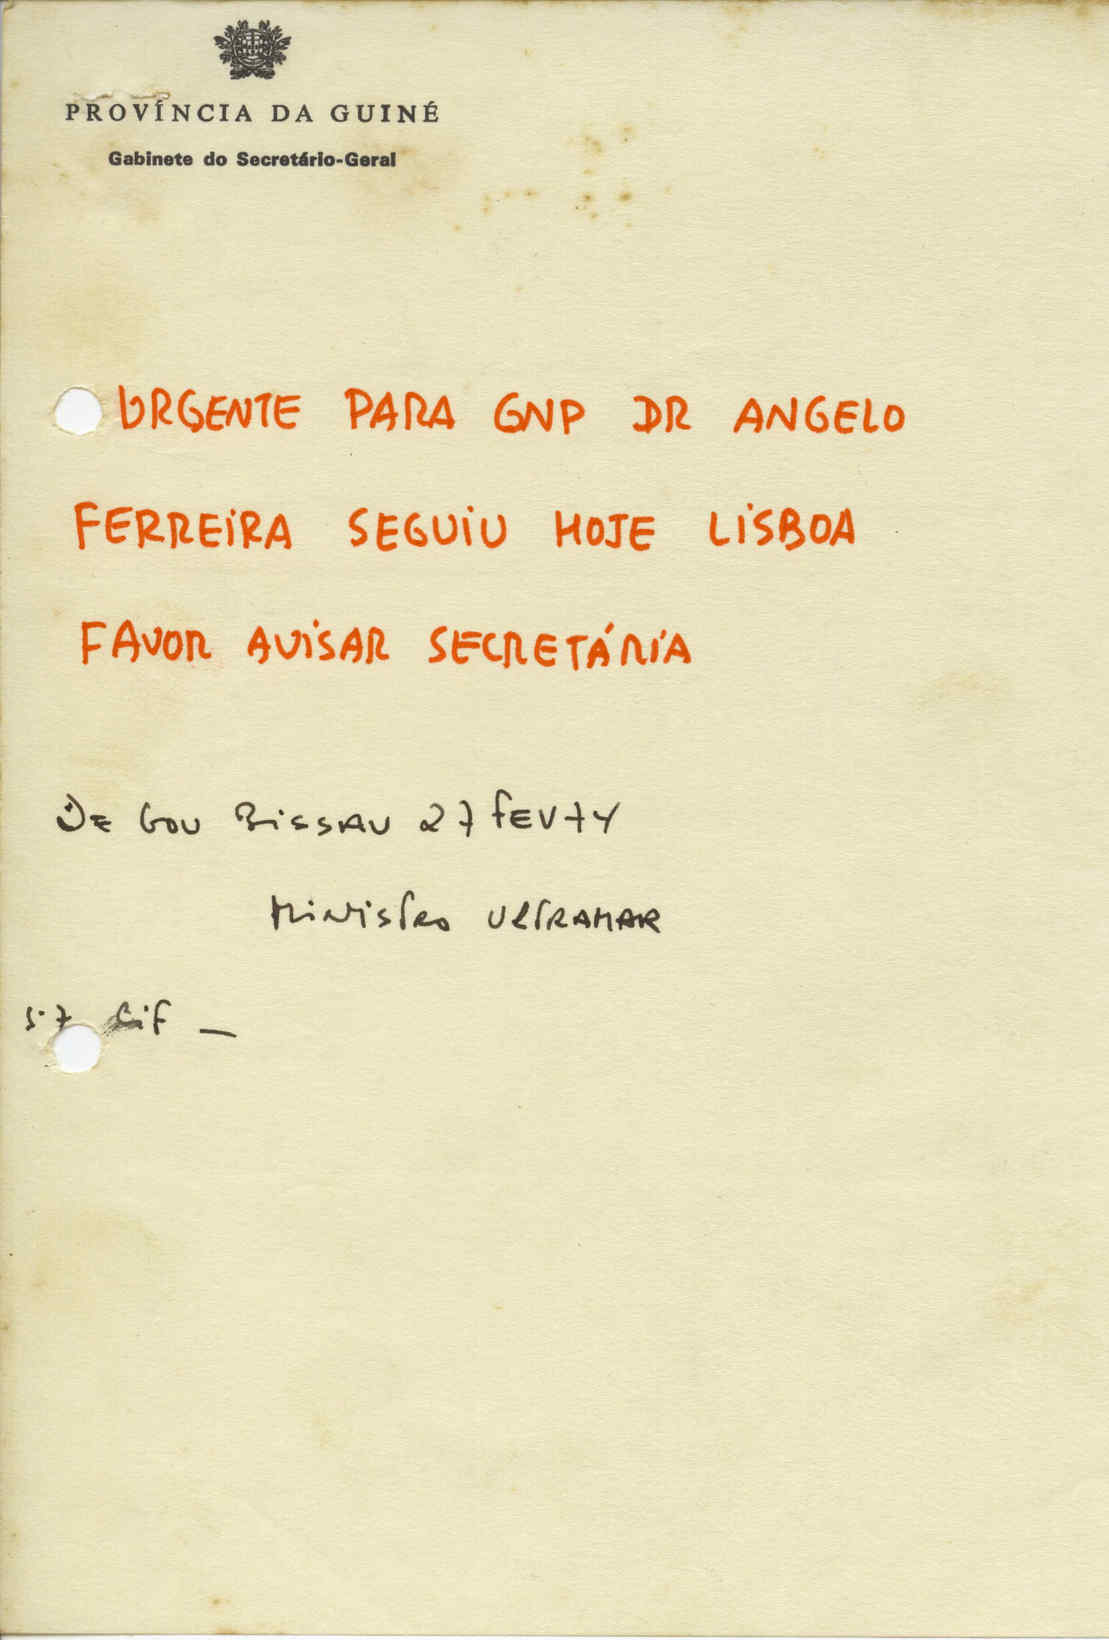 PROVÍNCIA DA GUINÉ
Gabinete do Secretário-Geral
URGENTE PARA GNP DR ANGELO
FERREIRA SEGUIU HOJE LISBOA
FAVOR AVISAR SECRETÁRIA
DE GOV BISSAU 27 FEV 74
MINISTRO ULTRAMAR
57 CIF —